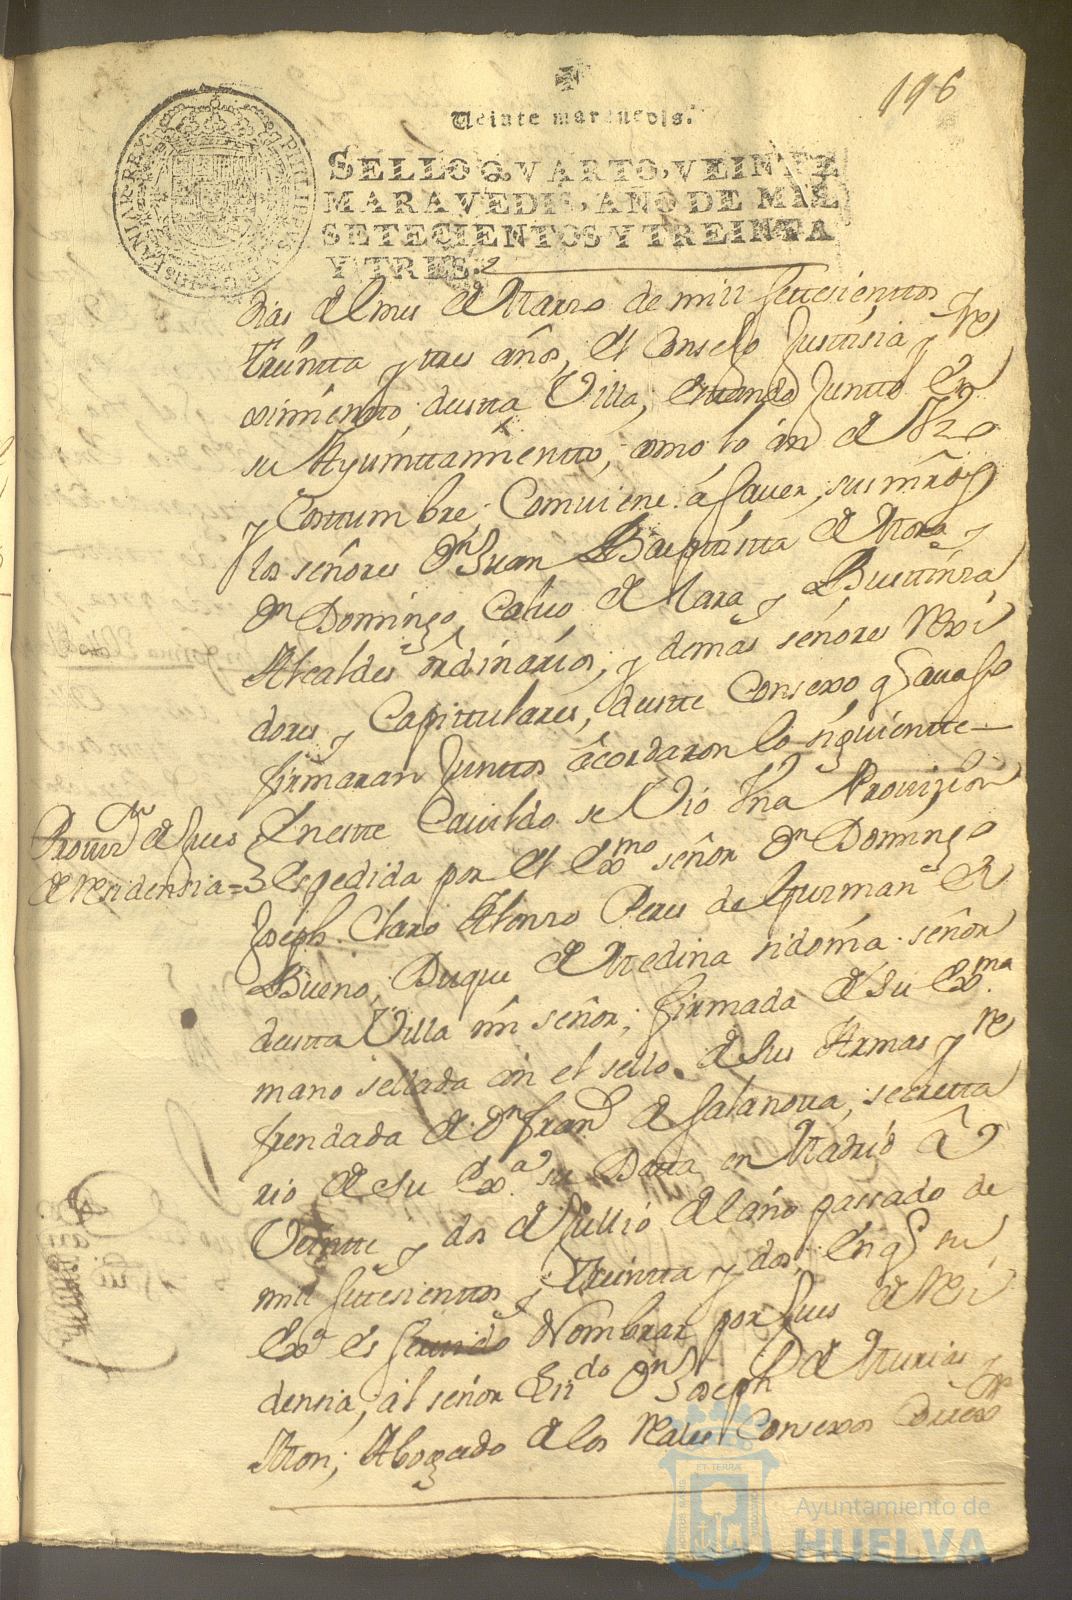 196
Veinte marauedis.
SELLO QVARTO, VEINTE
MARAVEDIS, AÑO DE MIL
SETECIENTOS Y TREINTA
Y TRES.
dias del mes de Marzo de mill settesienttos
treintta y tres años, el Consejo Justisia y Re
ximientto destta Villa, estando Juntto en
su Ayunttamientto, como lo an de Uzo
y Costtumbre, Combiene á sauer, sus mrds
los señores Dn Juan Baupttistta de Mora y
Dn Domingo Calbo de Lara y Busttinza
Alcaldes ordinarios, y demas señores Rexi
dores y Capittulares, destte Consexo q auaxo
firmaran Junttos acordaron lo siguientte
Prouisn de Jues
de residensia =
En estte Cauildo se Vio Una Prouizion
Espedida por el Exmo señor Dn Domingo
Joseph Claro Alonzo Peres de Gusman el
Bueno, Duque de Medina sidonia señor
destta Villa mi señor; firmada de su Exma
mano sellada con el sello de sus Armas y re
frendada de Dn Franco de Salanoua, secretta
rio de su Exa su Datta en Madrid á
Veintte y dos de Jullio del año passado de
mill settesienttos y treintta y dos, En q su
Exa es seruido Nombrar por Jues de Resi
densia, al señor Lizdo Dn Joseph de Asturias y
Mon; Abogado de los reales Consexos
ET TERRÆ
Ayuntamiento de
HUELVA